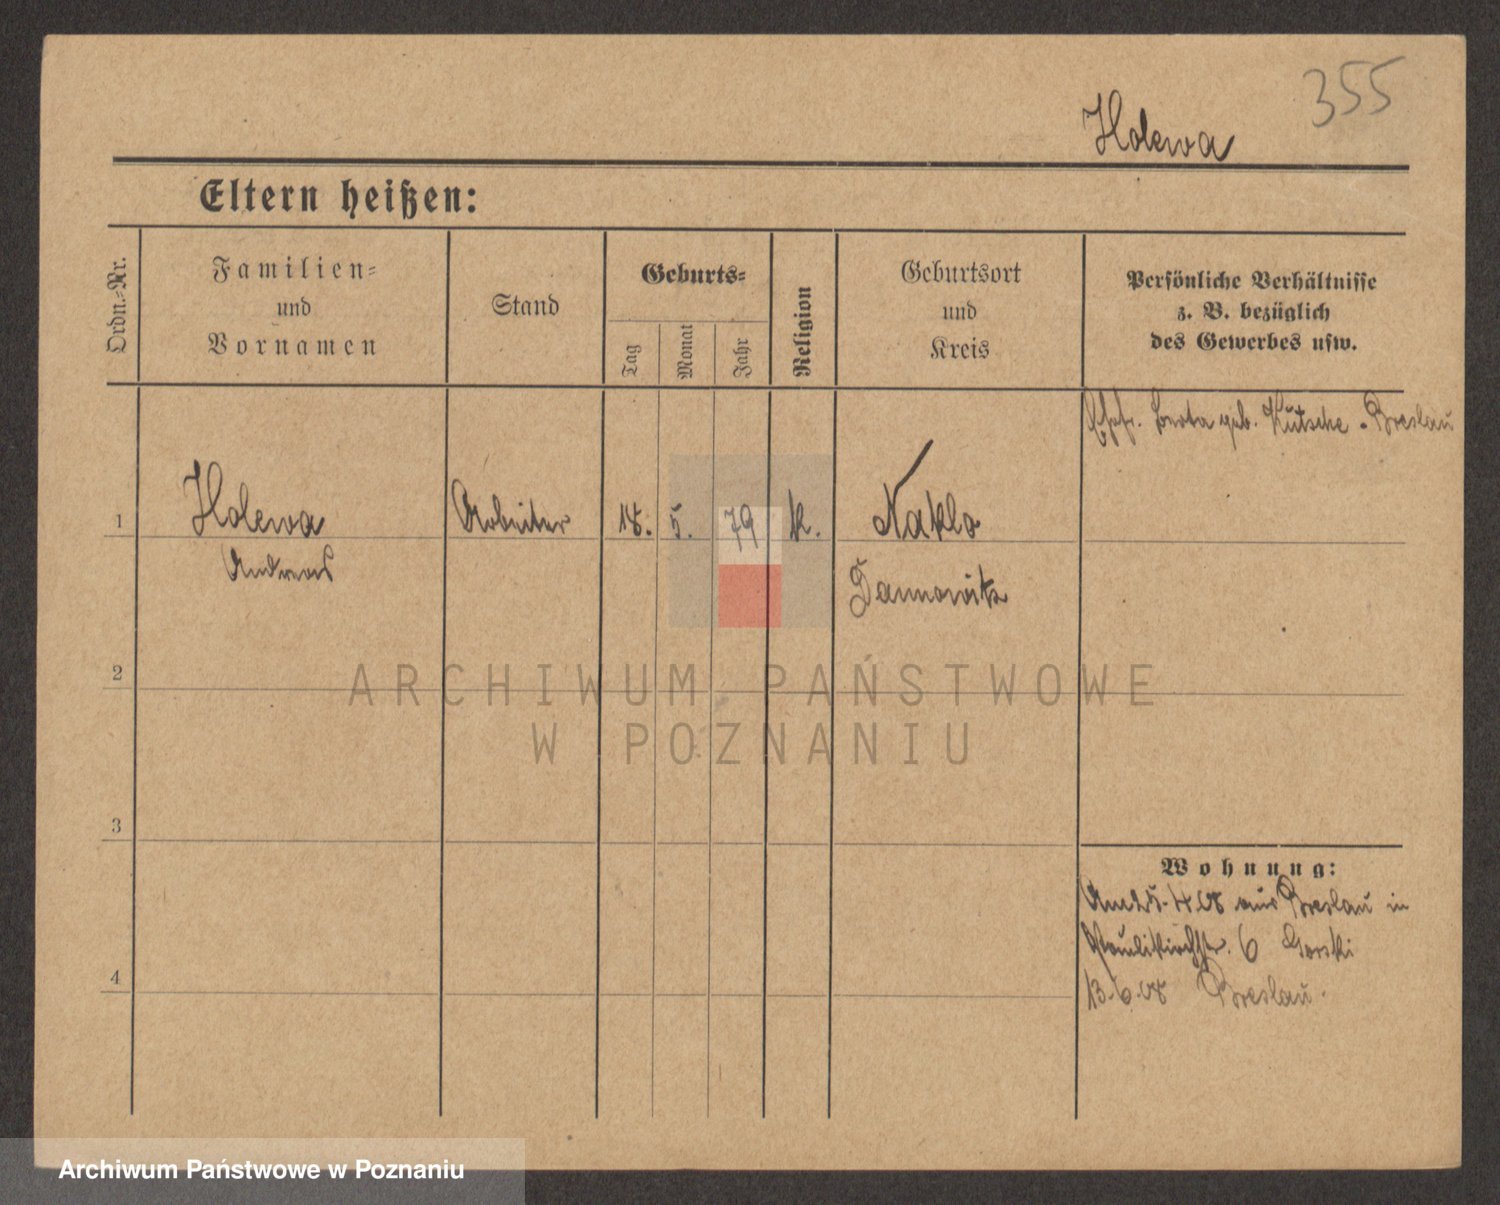 355
Holewa
Eltern heißen:
Ordn.=Nr.
Familien=
und
Vornamen
Stand
Geburts=
Tag
Monat
Jahr
Religion
Geburtsort
und
Kreis
Persönliche Verhältnisse
z. B. bezüglich
des Gewerbes usw.
geb. Kutsche - Breslau
1 Holewa Arbeiter 18. 5. 79 k. Naklo
Andreas
Tarnowitz
2
ARCHIWUM PAŃSTWOWE
W POZNANIU
3
Wohnung:
aus Breslau in
Paulikirchstr. 6 Gorski
4
13.6.08 Breslau.
Archiwum Państwowe w Poznaniu